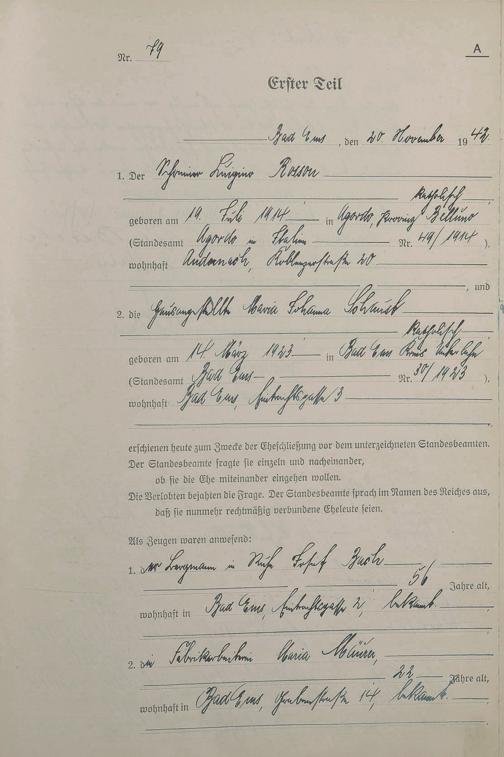 Nr. 79
A
Erster Teil
Bad Ems, den 20 November 1942
1. Der Schreiner Luigino Rosson
katholisch
geboren am 19. Juli 1914 in Agordo, Provinz Belluno
(Standesamt Agordo in Italien Nr. 49/1914).
wohnhaft Andernach, Koblenzerstraße 20
, und
2. die Hausangestellte Maria Johanna Schaust
katholisch
geboren am 14 März 1923 in Bad Ems Kreis Unterlahn
(Standesamt Bad Ems Nr. 30/1923).
wohnhaft Bad Ems, Eintrachtsgasse 3
erschienen heute zum Zwecke der Eheschließung vor dem unterzeichneten Standesbeamten.
Der Standesbeamte fragte sie einzeln und nacheinander,
ob sie die Ehe miteinander eingehen wollen.
Die Verlobten bejahten die Frage. Der Standesbeamte sprach im Namen des Reiches aus,
daß sie nunmehr rechtmäßig verbundene Eheleute seien.
Als Zeugen waren anwesend:
1. der Bergmann in Ruhe Josef Bach
56 Jahre alt,
wohnhaft in Bad Ems, Eintrachtsgasse 2, bekannt.
2. die Fabrikarbeiterin Maria
22 Jahre alt,
wohnhaft in Bad Ems, Grabenstraße 14, bekannt.